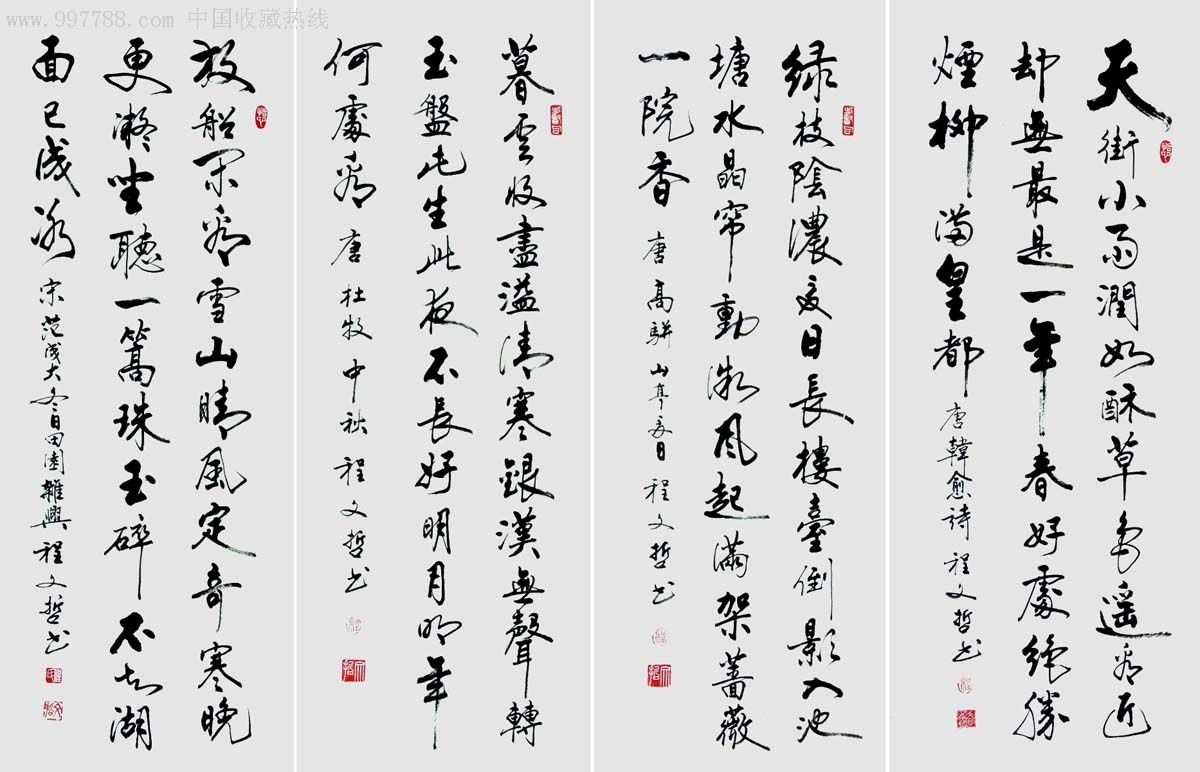 www.997788.com 中国收藏热线
天街小雨潤如酥草色遥看近
却無最是一年春好處絕勝
煙柳滿皇都 唐韓愈詩 程文哲书
绿枝陰濃夏日長樓臺倒影入池
塘水晶帘動微風起滿架薔薇
一院香 唐高駢山亭夏日 程文哲书
暮雲收盡溢清寒銀漢無聲轉
玉盤此生此夜不長好明月明年
何處看 唐杜牧中秋 程文哲书
放船閑看雪山晴風定奇寒晚
更凝坐聽一篙珠玉碎不知湖
面已成冰 宋范成大冬日田園雜興 程文哲书